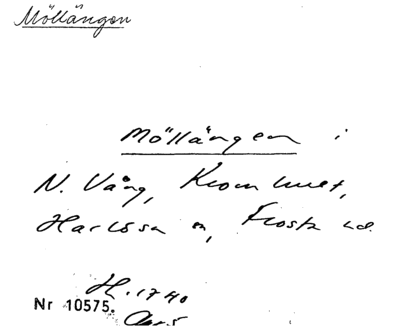 Möllängen
Möllängen i
N. Vång, Kromhuset,
Harlösa sn, Frosta hd.
H. 1740
Nr 10575.